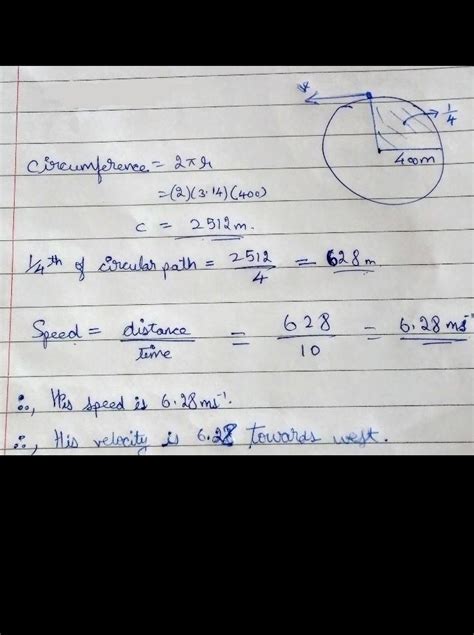 v
1/4
400m
Circumference = 2πr
= (2)(3.14)(400)
C = 2512m.
1/4th of circular path = 2512/4 = 628m
Speed = distance/time = 628/10 = 62.8 ms⁻¹
∴, His speed is 62.8 ms⁻¹.
∴, His velocity is 62.8 towards west.